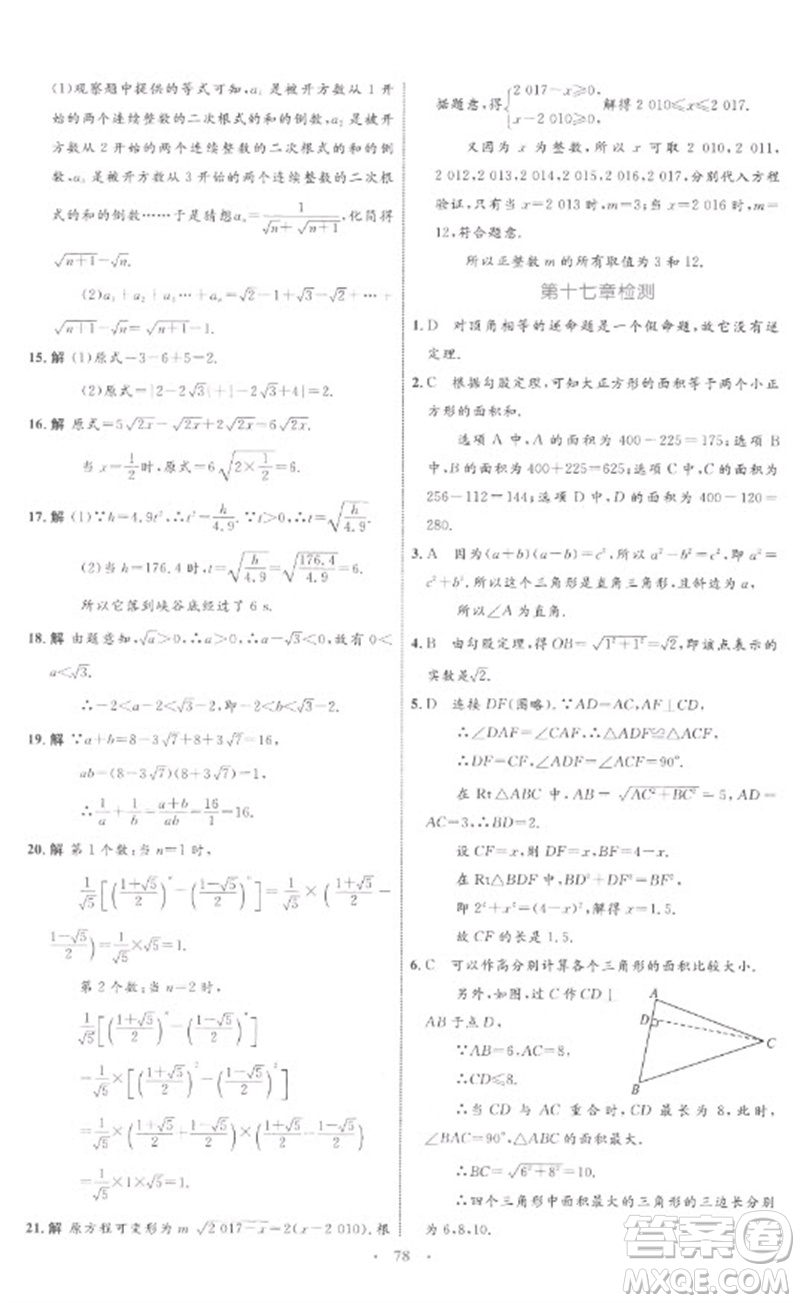 (1)观察题中提供的等式可知,a₁是被开方数从 1 开
始的两个连续整数的二次根式的和的倒数,a₂ 是被开
方数从 2 开始的两个连续整数的二次根式的和的倒
数,a₃是被开方数从 3 开始的两个连续整数的二次根
式的和的倒数……于是猜想aₙ=1/(√n+√(n+1)),化简得
√(n+1)-√n.
(2)a₁+a₂+a₃+…+aₙ=√(n+1)-1.
15. 解 (1)原式-3-6+5=2.
(2)原式=|2-2√3|+|-2√3+4|=2.
16. 解 原式=5√2x-√2x+2√2x=6√2x.
当 x=1/2时,原式=6√(2×1/2)=6.
17. 解 (1)∵h=4.9t²,∴t²=h/4.9.∵t>0,∴t=√(h/4.9).
(2)当 h=176.4 时,t=√(h/4.9)=√(176.4/4.9)=6.
所以它落到峡谷底经过了 6 s.
18. 解 由题意知,√a>0,∴a>0,∴a-√3<0,故有 0<
a<√3.
∴-2<a-2<√3-2.
19. 解 ∵a+b=8-3√7+8+3√7=16,
ab=(8-3√7)(8+3√7)=1,
∴1/a+1/b=(a+b)/ab=16/1=16.
20. 解 第 1 个数:当 n-1 时,
1/√5[((1+√5)/2)ⁿ-((1-√5)/2)ⁿ]=1/√5×((1+√5)/2-
(1-√5)/2)=1/√5×√5=1.
第 2 个数:当 n-2 时,
1/√5[((1+√5)/2)ⁿ-((1-√5)/2)ⁿ]
=1/√5×[((1+√5)/2)²-((1-√5)/2)²]
=1/√5×((1+√5)/2+(1-√5)/2)×((1+√5)/2-(1-√5)/2)
=1/√5×1×√5=1.
21. 解 原方程可变形为 m √(2 017-x)=2(x-2 010), 根
据题意,得{2 017-x≥0, x-2 010≥0, 解得 2 010≤x≤2 017.
又因为 x 为整数,所以 x 可取 2 010,2 011,
2 012,2 013,2 014,2 015,2 016,2 017,分别代入方程
验证,只有当 x=2 013 时,m=3;当 x=2 016 时,m=
12,符合题意.
所以正整数 m 的所有取值为 3 和 12.
第十七章检测
1. D 对顶角相等的逆命题是一个假命题,故它没有逆
定理.
2. C 根据勾股定理,可知大正方形的面积等于两个小正
方形的面积和.
选项 A 中,A 的面积为 400-225=175;选项 B
中,B 的面积为 400+225=625;选项 C 中,C 的面积为
256-112=144;选项 D 中,D 的面积为 400-120=
280.
3. A 因为(a+b)(a-b)=c²,所以 a²-b²=c²,即 a²=
c²+b².所以这个三角形是直角三角形,且斜边为 a,
所以∠A 为直角.
4. B 由勾股定理,得 OB=√(1²+1²)=√2,即该点表示的
实数是√2.
5. D 连接 DF(图略).∵AD=AC,AF⊥CD,
∴∠DAF=∠CAF,∴△ADF≌△ACF,
∴∠ADF=∠ACF=90°.
在 Rt△ABC 中,AB-√(AC²+BC²)=5,AD=
AC=3,∴BD=2.
设 CF=x,则 DF=x,BF=4-x.
在 Rt△BDF 中,BD²+DF²=BF²,
即 2²+x²=(4-x)²,解得 x=1.5,
故 CF 的长是 1.5.
6. C 可以作高分别计算各个三角形的面积比较大小.
另外,如图,过 C 作 CD⊥
AB 于点 D,
∵AB=6,AC=8,
∴CD≤8.
∴当 CD 与 AC 重合时,CD 最长为 8,此时,
∠BAC=90°,△ABC 的面积最大.
∴BC=√(6²+8²)=10.
∴四个三角形中面积最大的三角形的三边长分别
为 6,8,10.
A
D
C
B
· 78 ·
答案圈